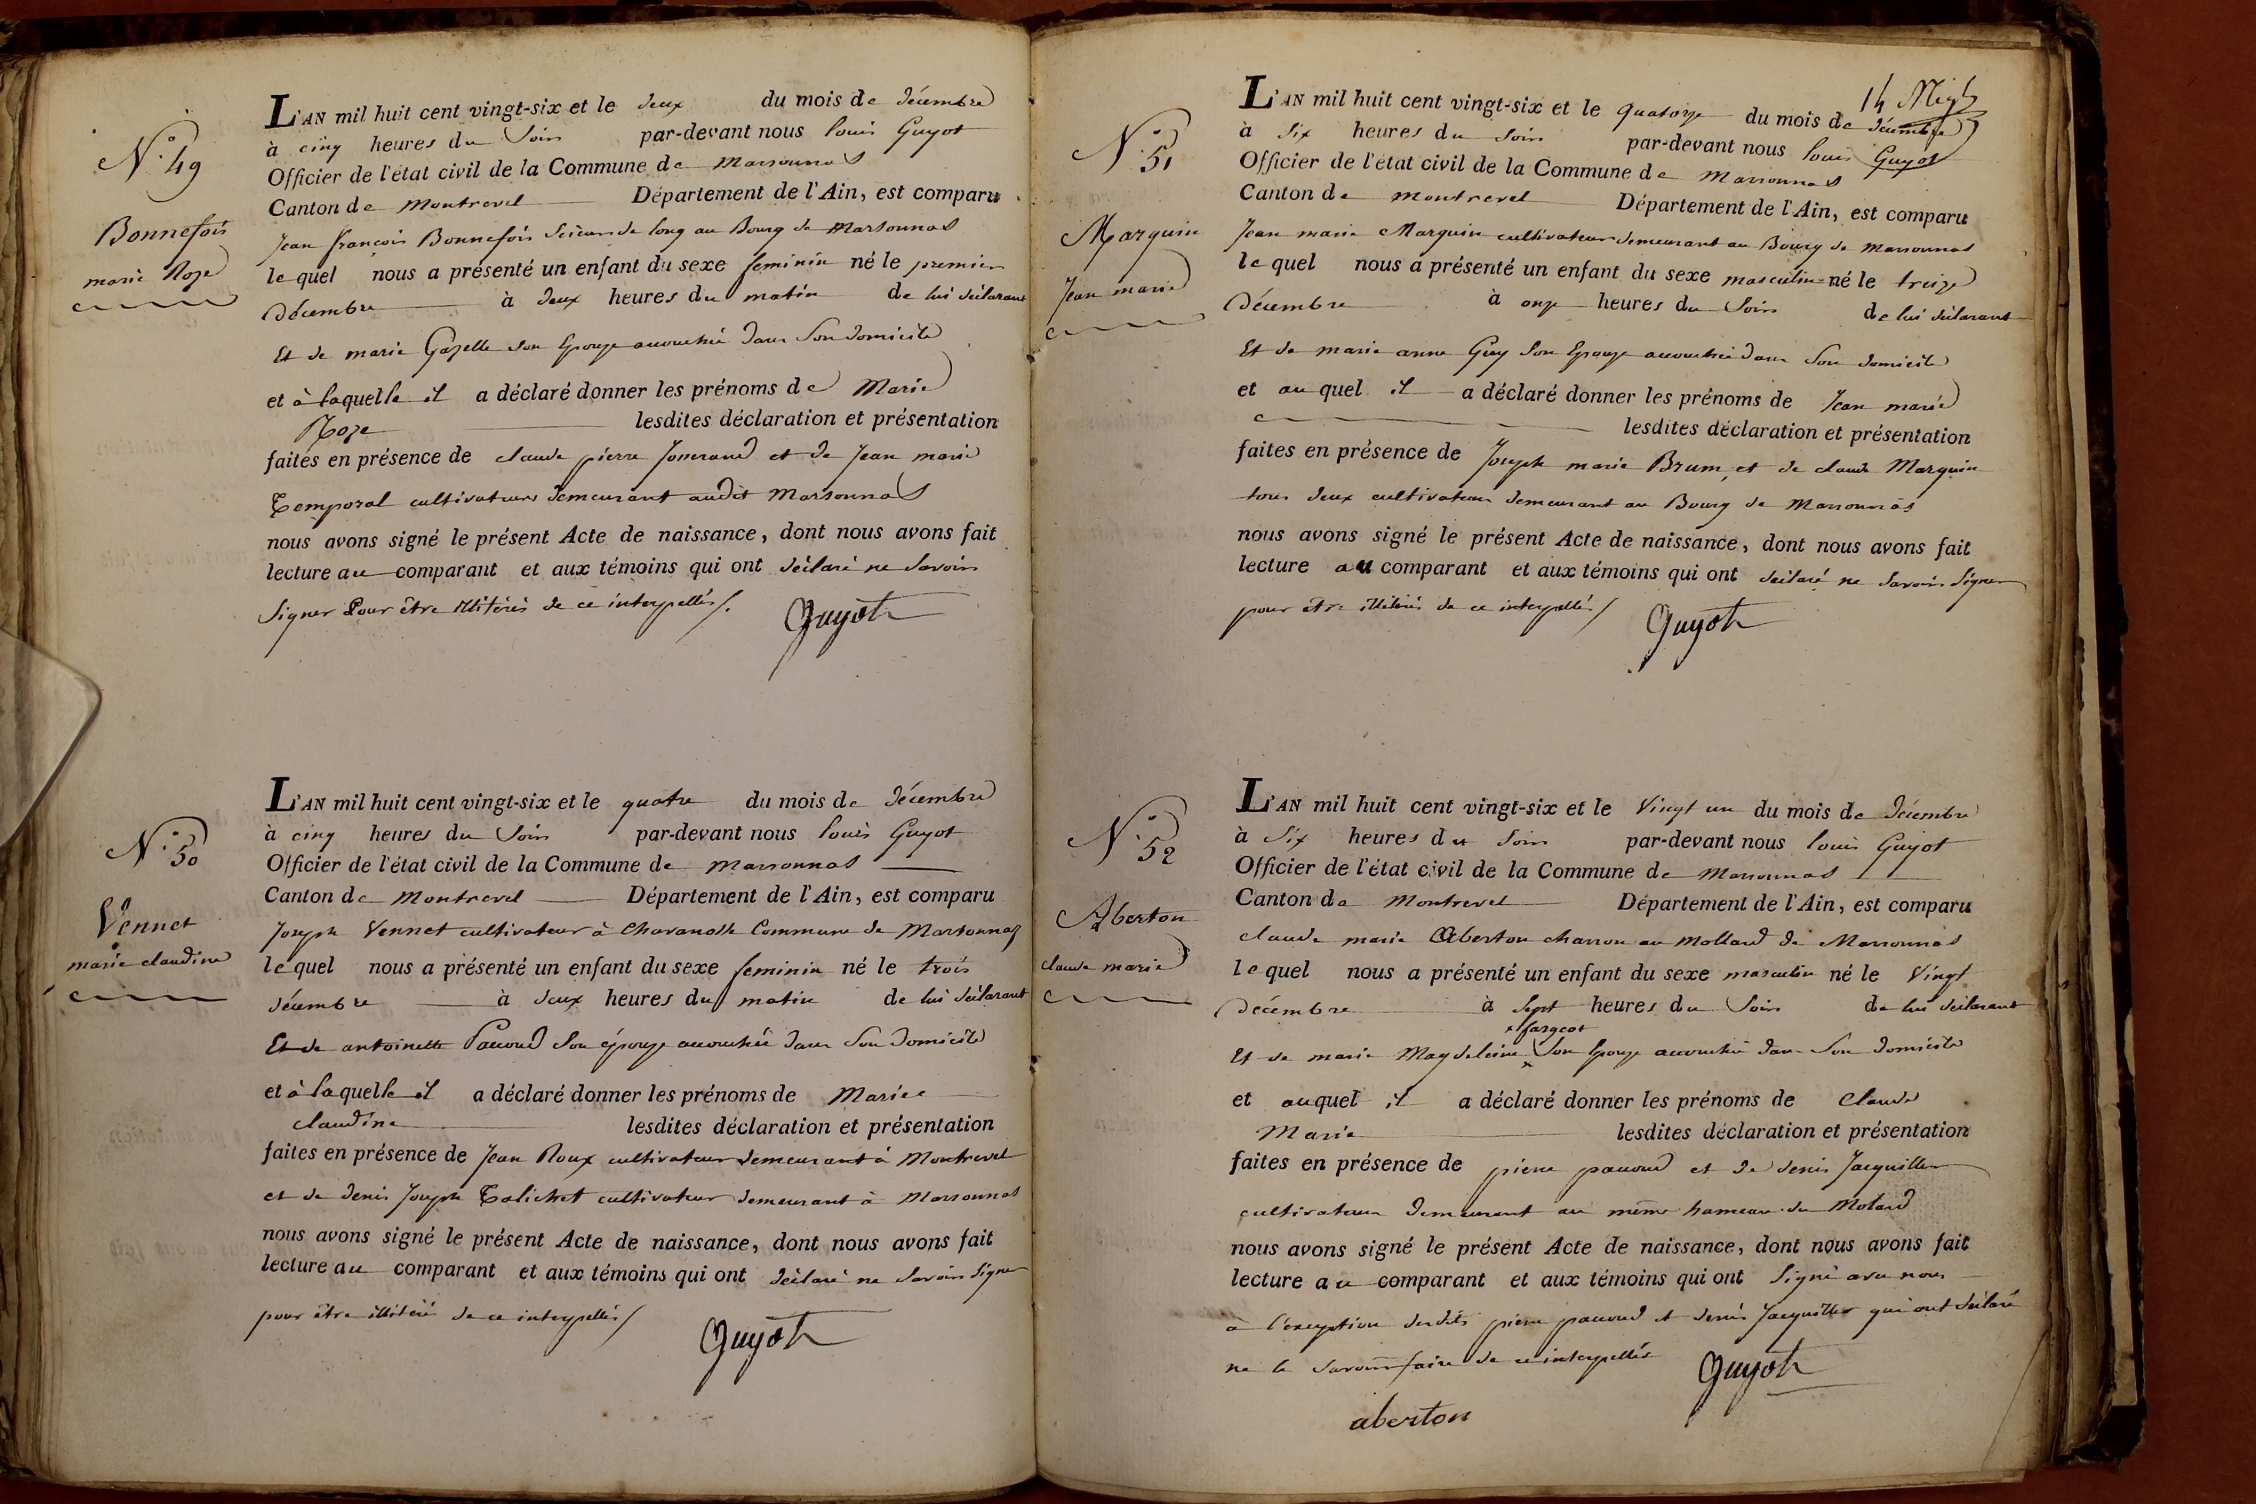 N.° 49
Bonnefois
marie Roze
L'AN mil huit cent vingt-six et le deux du mois de décembre
à cinq heures du Soir par-devant nous louis Guyot
Officier de l'état civil de la Commune de marsonnas
Canton de montrevel Département de l'Ain, est comparu
Jean françois Bonnefois Scieur de long au Bourg de marsonnas
lequel nous a présenté un enfant du sexe feminin né le premier
décembre à deux heures du matin de lui déclarant
Et de marie Gazelle son Epouze accouchée dans Son domicile
et à laquelle il a déclaré donner les prénoms de Marie
Roze lesdites déclaration et présentation
faites en présence de claude pierre et de Jean marie
Temporal cultivateurs demeurant audit marsonnas
nous avons signé le présent Acte de naissance, dont nous avons fait
lecture au comparant et aux témoins qui ont déclaré ne Savoir
Signer Pour être illitérés de ce interpellés/.
Guyot
N.° 50
Vennet
marie claudine
L'AN mil huit cent vingt-six et le quatre du mois de décembre
à cinq heures du Soir par-devant nous louis Guyot
Officier de l'état civil de la Commune de marsonnas
Canton de montrevel Département de l'Ain, est comparu
Joseph Vennet cultivateur à Commune de marsonnas
lequel nous a présenté un enfant du sexe feminin né le trois
décembre à deux heures du matin de lui déclarant
Et de antoinette Pauoud Son épouze accouchée dans Son domicile
et à laquelle il a déclaré donner les prénoms de Marie
claudine lesdites déclaration et présentation
faites en présence de Jean Roux cultivateur demeurant à Montrevel
et de denis Joseph Talichet cultivateur demeurant à marsonnas
nous avons signé le présent Acte de naissance, dont nous avons fait
lecture au comparant et aux témoins qui ont déclaré ne Savoir Signer
pour être illitérés de ce interpellés/
Guyot
14
N.° 51
Marguin
Jean marie
L'AN mil huit cent vingt-six et le quatorze du mois de décembre
à Six heures du Soir par-devant nous louis Guyot
Officier de l'état civil de la Commune de marsonnas
Canton de montrevel Département de l'Ain, est comparu
Jean marie Marguin cultivateur demeurant au Bourg de marsonnas
lequel nous a présenté un enfant du sexe masculin né le treize
décembre à onze heures du Soir de lui déclarant
Et de marie anne Guy Son Epouze accouchée dans Son domicile
et au quel il a déclaré donner les prénoms de Jean marie
lesdites déclaration et présentation
faites en présence de Joseph marie Brum, et de claude Marguin
tous deux cultivateurs demeurant au Bourg de marsonnas
nous avons signé le présent Acte de naissance, dont nous avons fait
lecture au comparant et aux témoins qui ont déclaré ne Savoir Signer
pour être illitérés de ce interpellés/
Guyot
N.° 52
Aberton
claude marie
L'AN mil huit cent vingt-six et le Vingt un du mois de décembre
à Six heures du Soir par-devant nous louis Guyot
Officier de l'état civil de la Commune de marsonnas
Canton de Montrevel Département de l'Ain, est comparu
claude marie Aberton charron au Mollard de Marsonnas
lequel nous a présenté un enfant du sexe masculin né le Vingt
décembre à Sept heures du Soir de lui déclarant
x fargeot
Et de marie Magdeleine x Son Epouze accouchée dans Son domicile
et auquel il a déclaré donner les prénoms de Claude
Marie lesdites déclaration et présentation
faites en présence de pierre pauoud et de denis Jacquiller
cultivateurs demeurant au même hameau du Molard
nous avons signé le présent Acte de naissance, dont nous avons fait
lecture au comparant et aux témoins qui ont Signé avec nous
à l'exception desdits pierre pauoud et denis Jacquiller qui ont déclaré
ne le Savoir faire de ce interpellés
Guyot
aberton